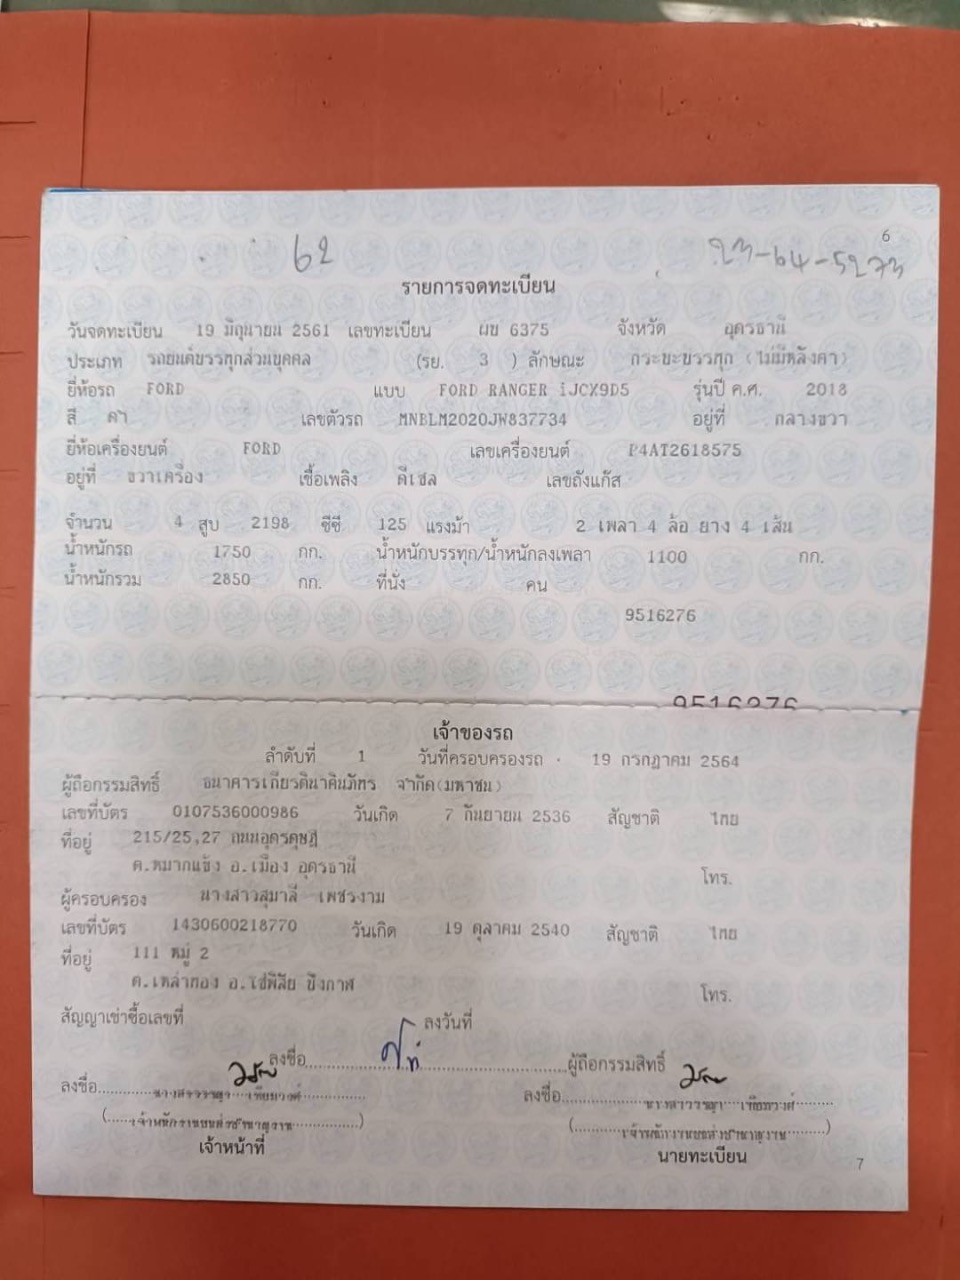 6
62
23-64-5273
รายการจดทะเบียน
วันจดทะเบียน 19 มิถุนายน 2561 เลขทะเบียน ผข 6375 จังหวัด อุดรธานี
ประเภท รถยนต์บรรทุกส่วนบุคคล (รย. 3 ) ลักษณะ กระบะบรรทุก (ไม่มีหลังคา)
ยี่ห้อรถ FORD แบบ FORD RANGER iJCX9D5 รุ่นปี ค.ศ. 2018
สี ดำ เลขตัวรถ MNBLM2020JW837734 อยู่ที่ กลางขวา
ยี่ห้อเครื่องยนต์ FORD เลขเครื่องยนต์ P4AT2618575
อยู่ที่ ขวาเครื่อง เชื้อเพลิง ดีเซล เลขถังแก๊ส
จำนวน 4 สูบ 2198 ซีซี 125 แรงม้า 2 เพลา 4 ล้อ ยาง 4 เส้น
น้ำหนักรถ 1750 กก. น้ำหนักบรรทุก/น้ำหนักลงเพลา 1100 กก.
น้ำหนักรวม 2850 กก. ที่นั่ง คน
9516276
9516276
เจ้าของรถ
ลำดับที่ 1 วันที่ครอบครองรถ 19 กรกฎาคม 2564
ผู้ถือกรรมสิทธิ์ ธนาคารเกียรตินาคินภัทร จำกัด(มหาชน)
เลขที่บัตร 0107536000986 วันเกิด 7 กันยายน 2536 สัญชาติ ไทย
ที่อยู่ 215/25,27 ถนนอุดรดุษฎี
ต.หมากแข้ง อ.เมือง อุดรธานี โทร.
ผู้ครอบครอง นางสาวสุมาลี เพชรงาม
เลขที่บัตร 1430600218770 วันเกิด 19 ตุลาคม 2540 สัญชาติ ไทย
ที่อยู่ 111 หมู่ 2
ต.เหล่าทอง อ.โซ่พิสัย บึงกาฬ โทร.
สัญญาเช่าซื้อเลขที่ ลงวันที่
ลงชื่อ ผู้ถือกรรมสิทธิ์
ลงชื่อ ลงชื่อ
เจ้าหน้าที่ นายทะเบียน
7